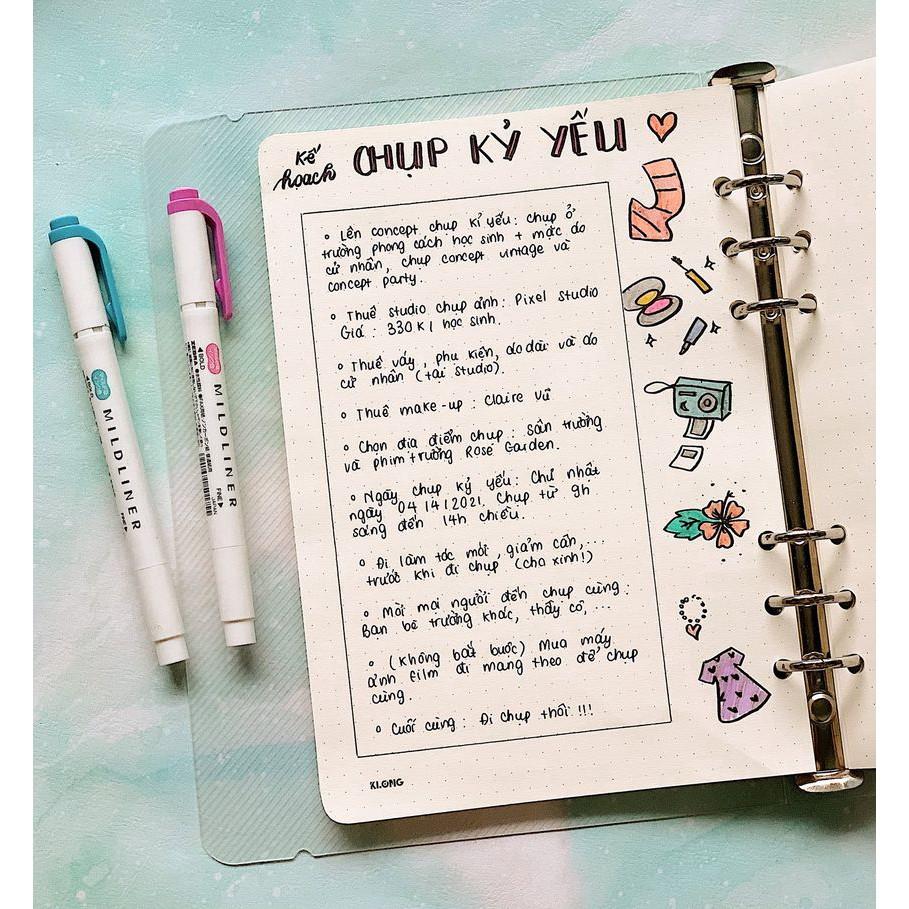 Kế hoạch
CHỤP KỶ YẾU
Lên concept chụp kỉ yếu: chụp ở
trường phong cách học sinh + mặc áo
cử nhân, chụp concept vintage và
concept party.
Thuê studio chụp ảnh: Pixel studio
Giá: 330K / học sinh.
Thuê váy, phụ kiện, áo dài và áo
cử nhân (tại studio).
Thuê make-up: Claire Vũ
Chọn địa điểm chụp: Sân trường
và phim trường Rose Garden.
Ngày chụp kỷ yếu: Chủ nhật
ngày 04/4/2021. Chụp từ 9h
sáng đến 14h chiều.
Đi làm tóc mới, giảm cân,...
trước khi đi chụp (cho xinh!)
Mời mọi người đến chụp cùng.
Bạn bè trường khác, thầy cô, ...
(Không bắt buộc) Mua máy
ảnh film đi mang theo để chụp
cùng.
Cuối cùng: Đi chụp thôi!!!
KLONG
MILDLINER
FINE
BOLD
ZEBRA
MILDLINER
FINE
JAPAN